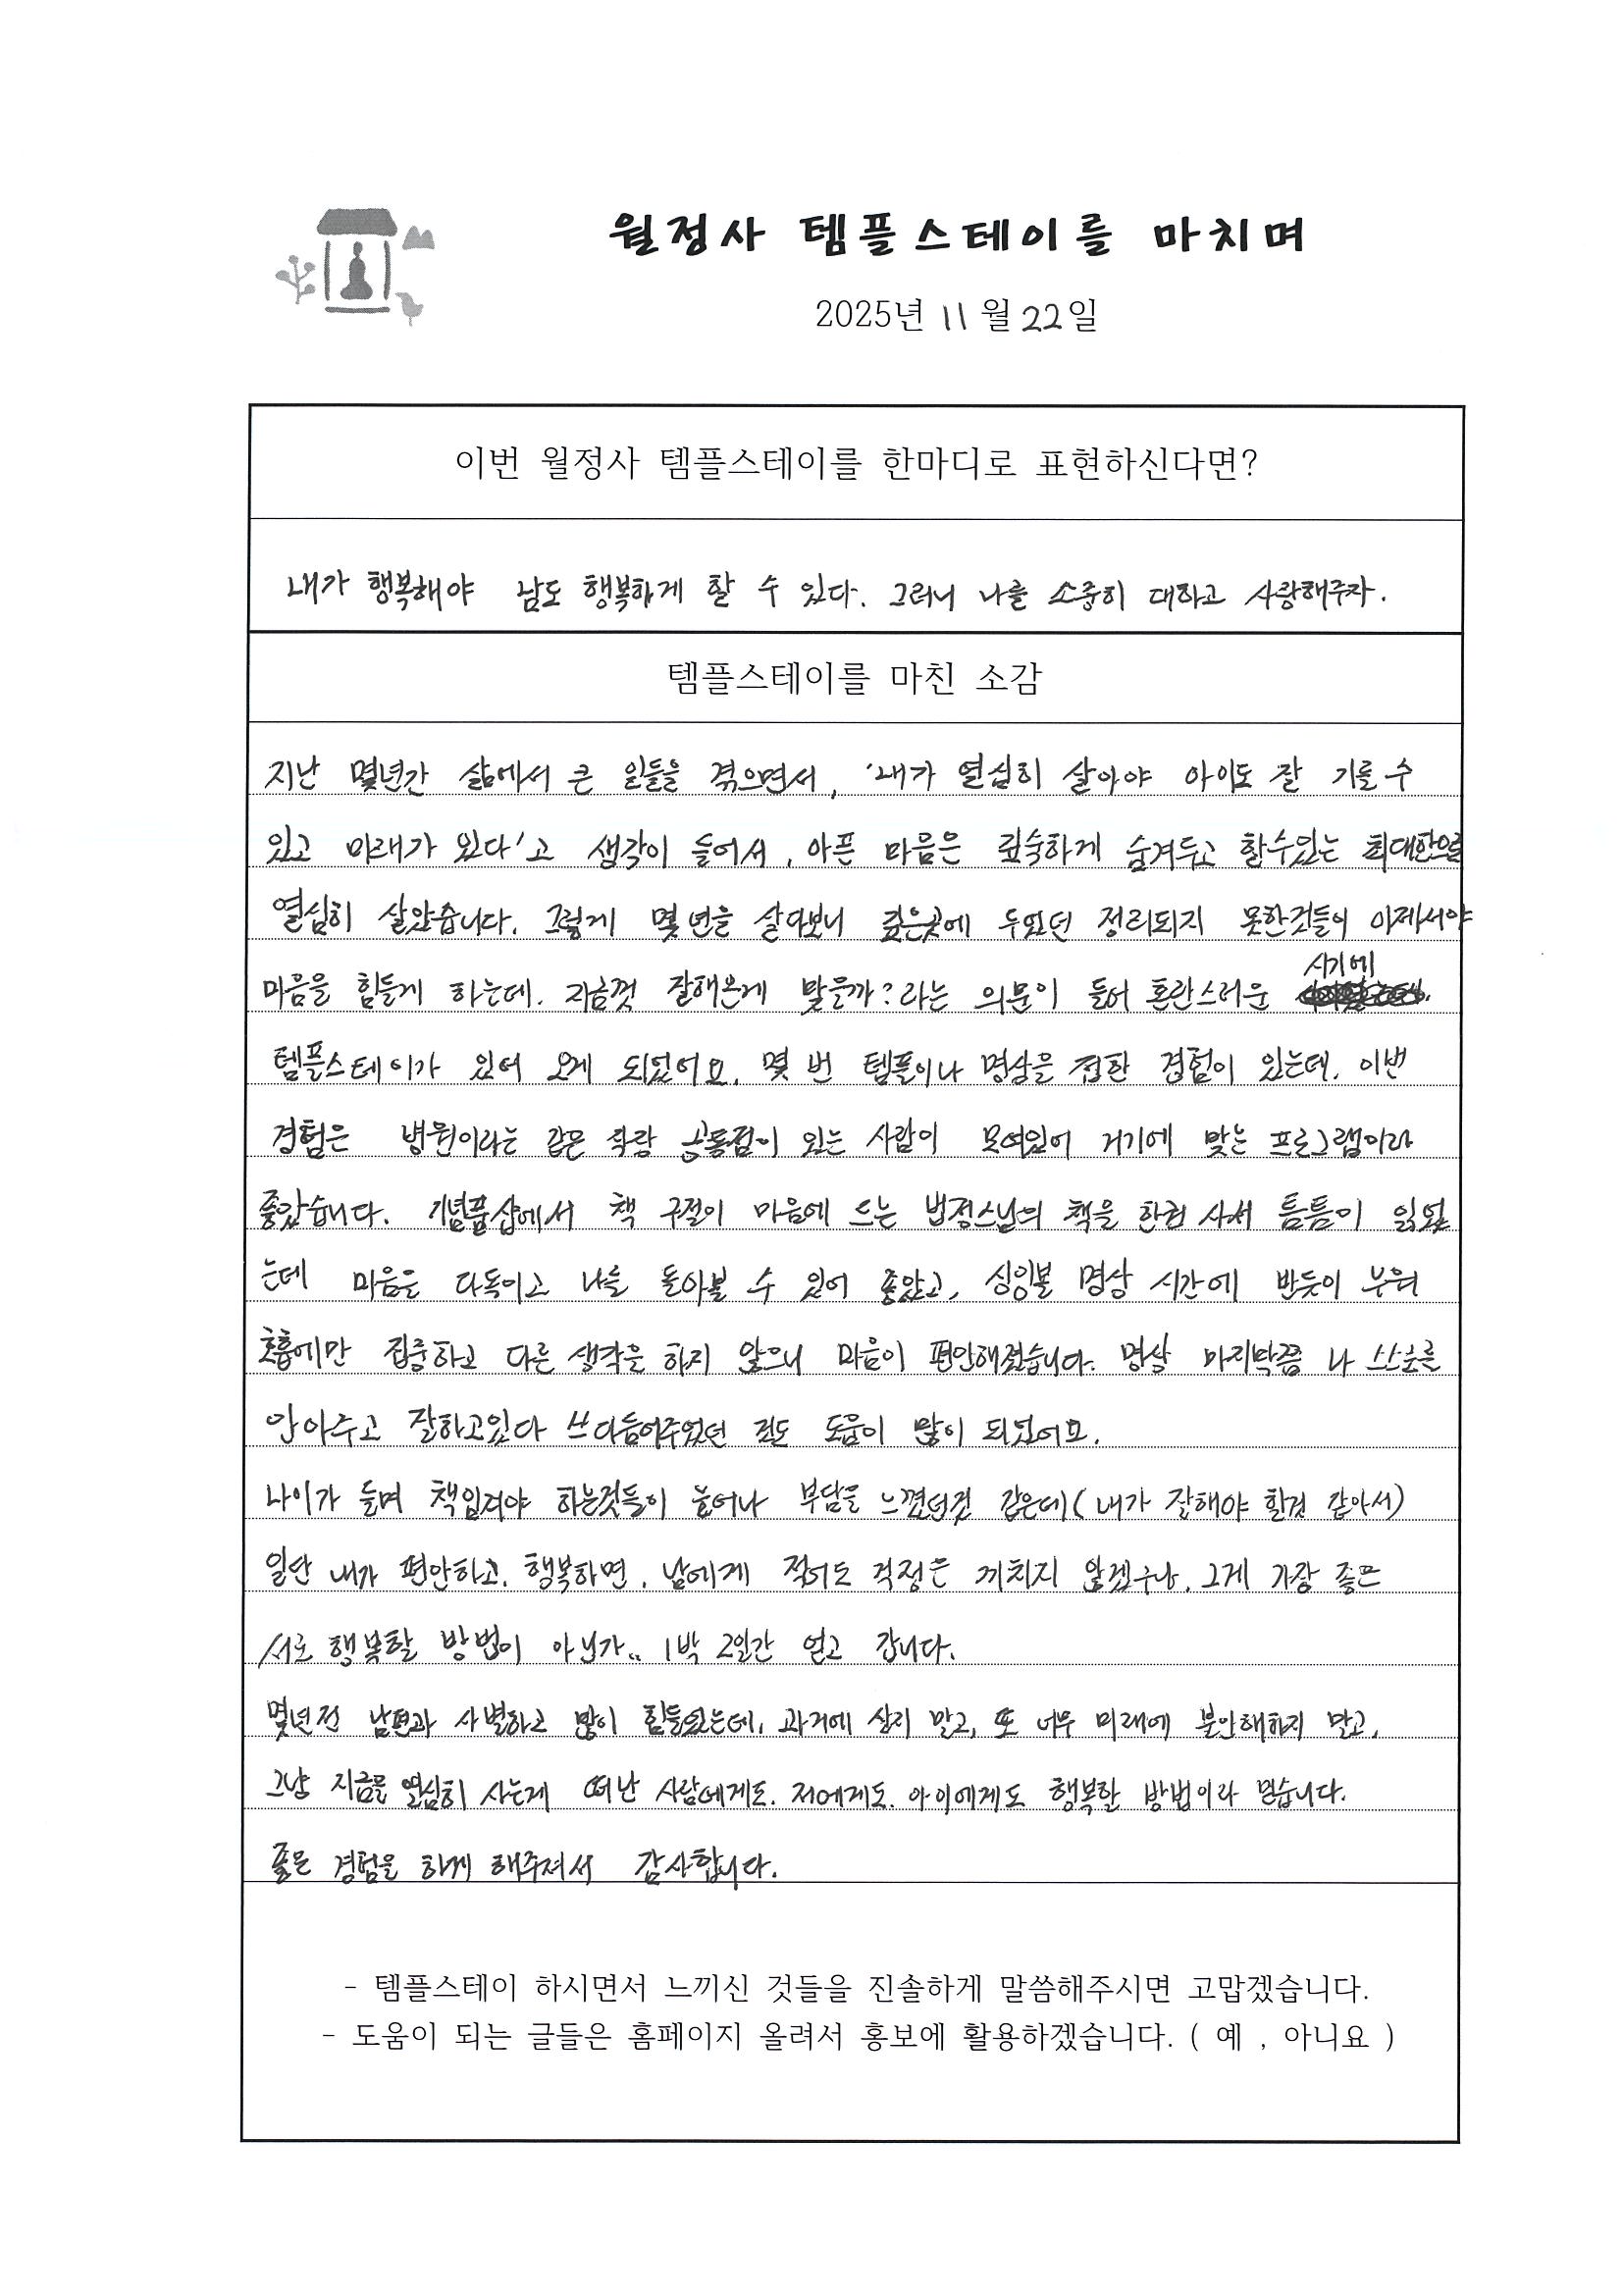 월정사 템플스테이를 마치며
2025년 11월 22일
이번 월정사 템플스테이를 한마디로 표현하신다면?
내가 행복해야 남도 행복하게 할 수 있다. 그러니 나를 소중히 대하고 사랑해주자.
템플스테이를 마친 소감
지난 몇년간 삶에서 큰 일들을 겪으면서, '내가 열심히 살아야 아이도 잘 기를 수
있고 미래가 있다'고 생각이 들어서, 아픈 마음은 깊숙하게 숨겨두고 할수있는 최대한으로
열심히 살았습니다. 그렇게 몇 년을 살다보니 깊은곳에 두었던 정리되지 못한것들이 이제서야
마음을 힘들게 하는데. 지금껏 잘해온게 맞을까? 라는 의문이 들어 혼란스러운 시기에
템플스테이가 있어 오게 되었어요. 몇 번 템플이나 명상을 접한 경험이 있는데. 이번
경험은 병원이라는 같은 직장 공통점이 있는 사람이 모여있어 거기에 맞는 프로그램이라
좋았습니다. 기념품샵에서 책 구절이 마음에 드는 법정스님의 책을 한권 사서 틈틈이 읽었
는데 마음을 다독이고 나를 돌아볼 수 있어 좋았고, 싱잉볼 명상 시간에 반듯이 누워
호흡에만 집중하고 다른 생각을 하지 않으니 마음이 편안해졌습니다. 명상 마지막쯤 나 스스로를
안아주고 잘하고있다 쓰다듬어주었던 것도 도움이 많이 되었어요.
나이가 들며 책임져야 하는것들이 늘어나 부담을 느꼈던것 같은데 (내가 잘해야 할것 같아서)
일단 내가 편안하고, 행복하면, 남에게 적어도 걱정은 끼치지 않겠구나, 그게 가장 좋은
서로 행복할 방법이 아닌가.. 1박 2일간 얻고 갑니다.
몇년전 남편과 사별하고 많이 힘들었는데, 과거에 살지 말고, 또 너무 미래에 불안해하지 말고,
그냥 지금을 열심히 사는게 떠난 사람에게도. 저에게도. 아이에게도 행복할 방법이라 믿습니다.
좋은 경험을 하게 해주셔서 감사합니다.
- 템플스테이 하시면서 느끼신 것들을 진솔하게 말씀해주시면 고맙겠습니다.
- 도움이 되는 글들은 홈페이지 올려서 홍보에 활용하겠습니다. ( 예 , 아니요 )